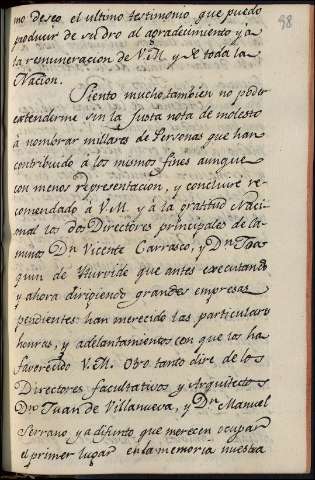 98
mo deseo, el ultimo testimonio que puedo
producir de
al agradecimiento y a
la remuneracion de V.M. y de toda la
Nacion.
Siento mucho tambien no poder
extenderme sin la justa nota de molesto
a nombrar millares de Personas que han
contribuido á los mismos fines aunque
con menos representacion, y concluiré re-
comendado á V.M. y á la gratitud Nacio
nal los dos Directores principales de Ca-
minos Dn. Vicente Carrasco, y Dn. Joa
quin de Yturvide que antes executando
y ahora dirigiendo grandes empresas
pendientes han merecido las particulares
honras, y adelantamientos con que los ha
favorecido V.M. Otro tanto dire de los
Directores facultativos y Arquitectos
Dn. Juan de Villanueva, y Dn. Manuel
Serrano, ya difunto que merecen ocupar
el primer lugar en la memoria nuestra